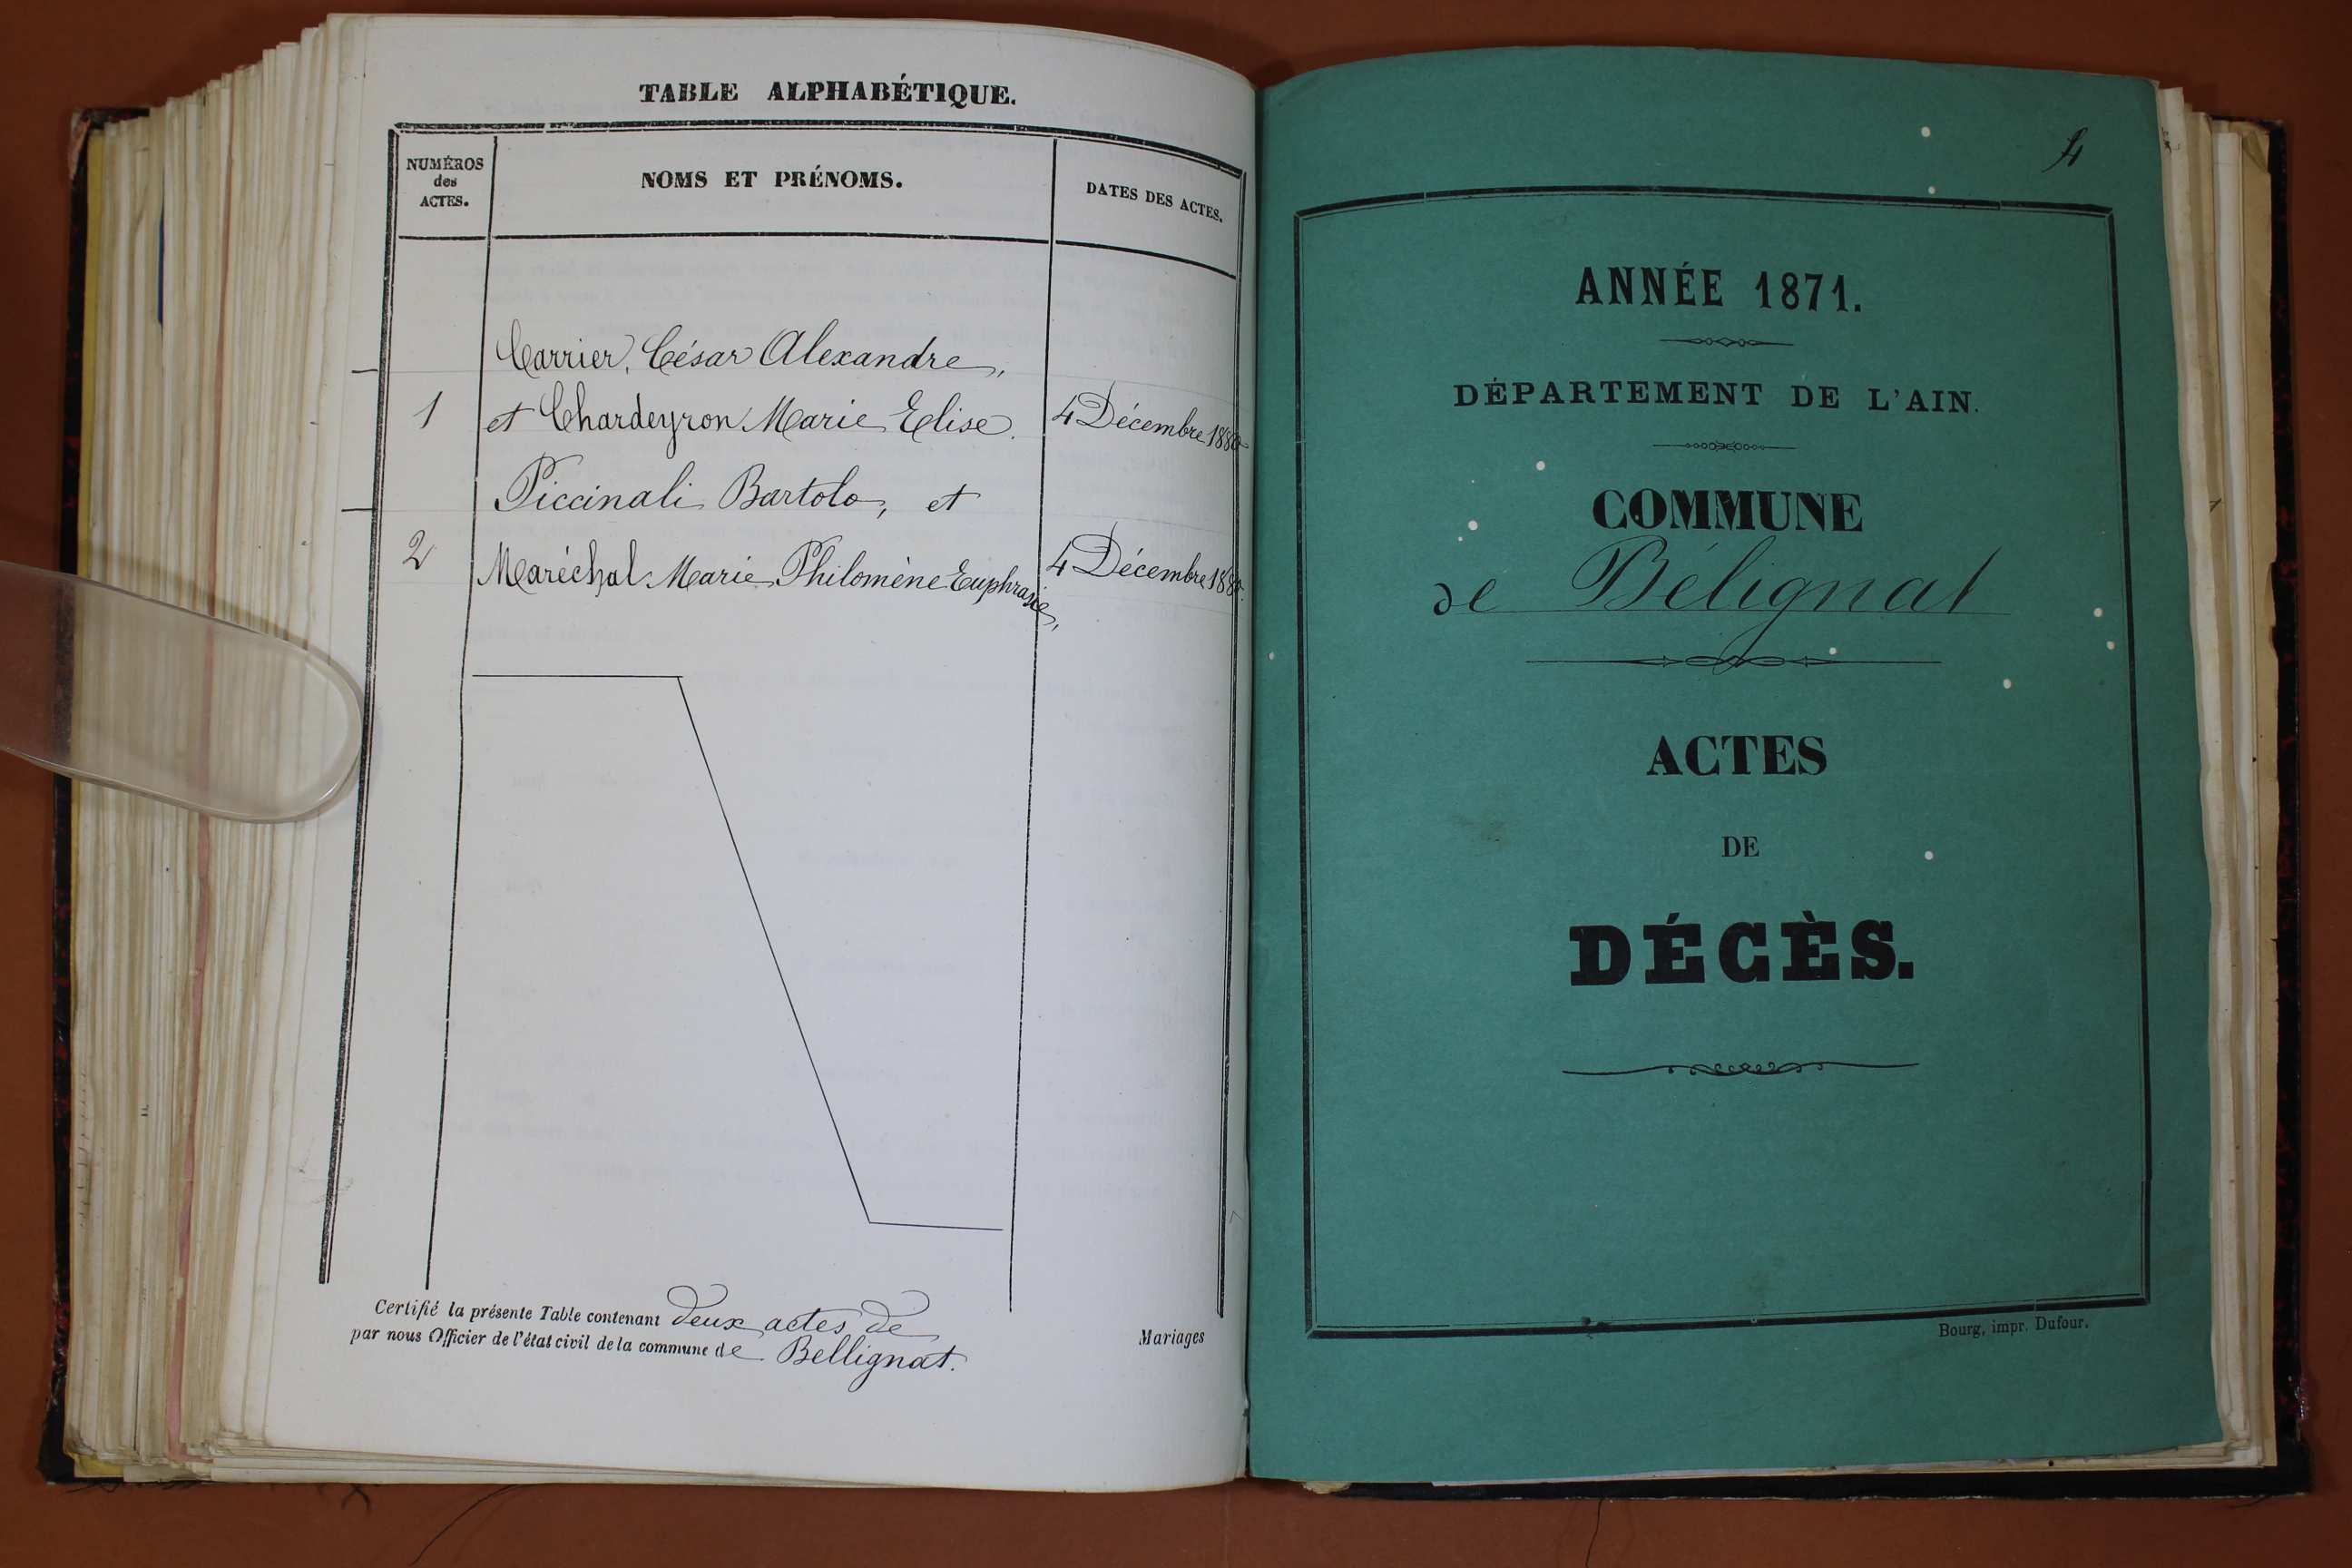 TABLE ALPHABÉTIQUE.
NUMÉROS
des
ACTES.
NOMS ET PRÉNOMS.
DATES DES ACTES.
Carrier, César Alexandre,
1 et Chardeyron Marie Elise. 4 Décembre 1880
Piccinali Bartolo, et
2 Maréchal Marie Philomène Euphrasie, 4 Décembre 1880.
Certifié la présente Table contenant deux actes de Mariages
par nous Officier de l'état civil de la commune de Bellignat.
4
ANNÉE 1871.
DÉPARTEMENT DE L'AIN.
COMMUNE
de Bélignat
ACTES
DE
DÉCÈS.
Bourg, impr. Dufour.